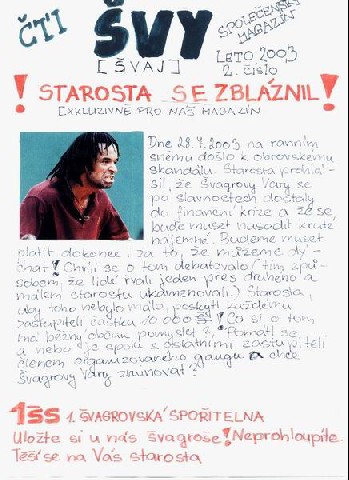 ČTI
ŠVY
[ŠVAJ]
SPOLEČENSKÝ
MAGAZÍN
LETO 2003
2. číslo
! STAROSTA SE ZBLÁZNIL !
EXKLUZIVNĚ PRO NÁŠ MAGAZÍN
Dne 28.7.2003 na ranním
sněmu došlo k obrovskému
skandálu. Starosta prohlá-
sil, že Švagrovy Vary se
po slavnostech dostaly
do finanční krize a že se
bude muset nasadit kruté
nájemné. Budeme muset
platit dokonce za to, že můžeme dý-
chat! Chvíli se o tom debatovalo (tím způ-
sobem, že lidé řvali jeden přes druhého a
málem starostu ukamenovali). Starosta,
aby toho nebylo málo, poskytl každému
zastupiteli částku 10 000 šš! Co si o tom
má běžný občan pomyslet? Pomátl se
a nebo je spolu s ostatními zastupiteli
členem organizovaného gangu a chce
Švagrovy Vary zruinovat?
1šs 1. ŠVAGROVSKÁ SPOŘITELNA
Uložte si u nás švagroše! Neprohloupíte.
Těší se na Vás starosta